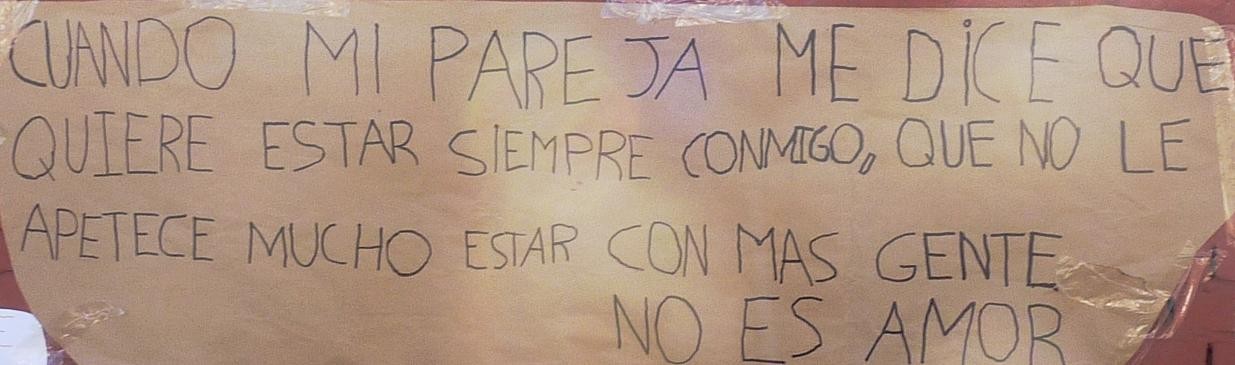 CUANDO MI PAREJA ME DICE QUE
QUIERE ESTAR SIEMPRE CONMIGO, QUE NO LE
APETECE MUCHO ESTAR CON MAS GENTE
NO ES AMOR